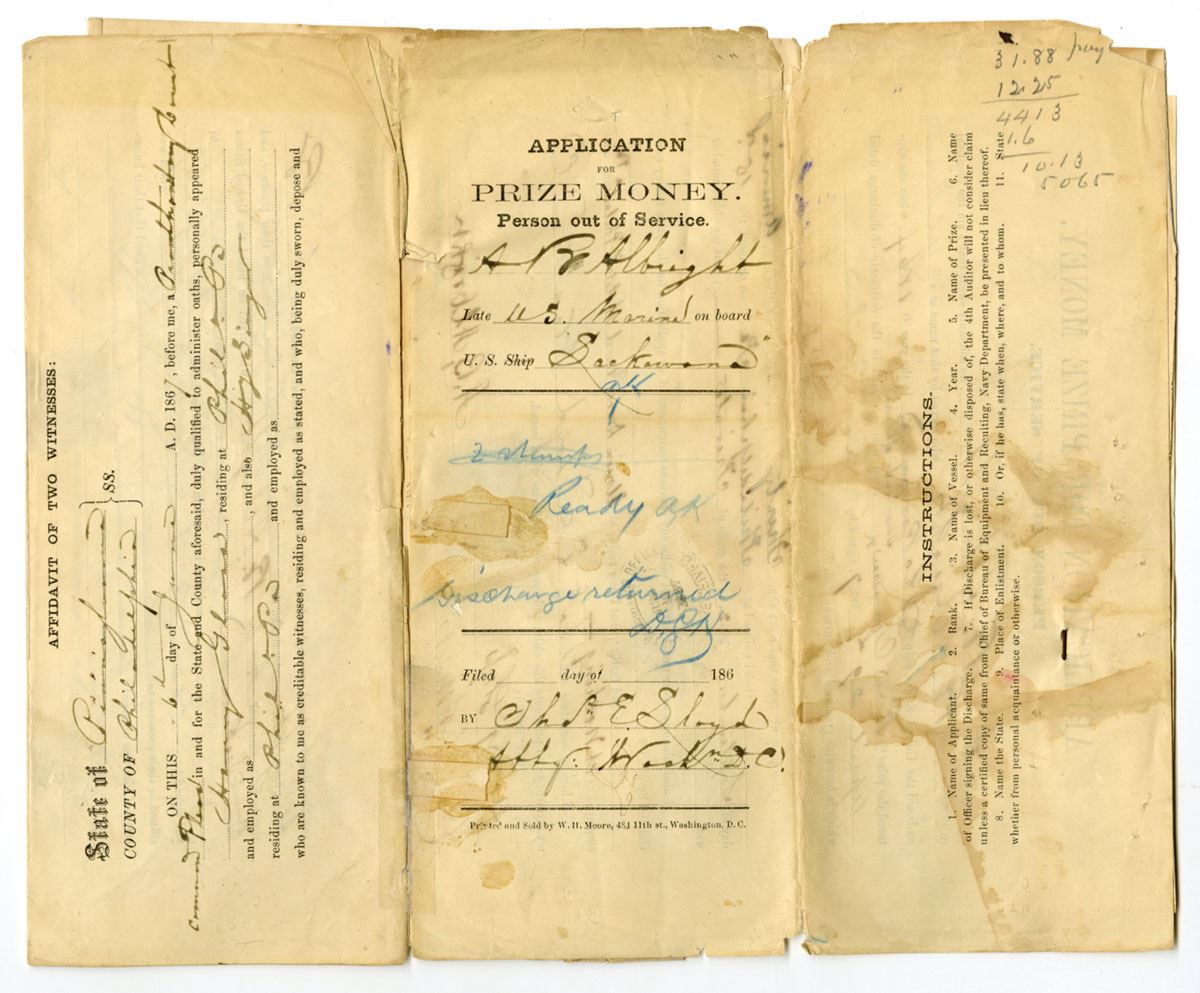 AFFIDAVIT OF TWO WITNESSES:
State of Pennsylvania
COUNTY OF Philadelphia } SS.
ON THIS 6th day of June A. D. 1867, before me, a Prothonotary Court
common Pleas in and for the State and County aforesaid, duly qualified to administer oaths, personally appeared
Henry , residing at Phil. Pa
and employed as , and also
residing at Phil. Pa and employed as
who are known to me as creditable witnesses, residing and employed as stated, and who, being duly sworn, depose and
APPLICATION
FOR
PRIZE MONEY.
Person out of Service.
A B Albright
Late U S. Marine on board
U. S. Ship Lackawana"
ak
2 stamps
Ready ak
Discharge returned
Filed day of 186
BY Thos E. Lloyd
Atty. Washn D.C.
Printed and Sold by W. H. Moore, 484 11th st., Washington, D. C.
31.88
12.25
4413
1.6
10.13
5065
INSTRUCTIONS.
1. Name of Applicant. 2. Rank. 3. Name of Vessel. 4. Year. 5. Name of Prize. 6. Name
of Officer signing the Discharge. 7. If Discharge is lost, or otherwise disposed of, the 4th Auditor will not consider claim
unless a certified copy of same from Chief of Bureau of Equipment and Recruiting, Navy Department, be presented in lieu thereof.
8. Name the State. 9. Place of Enlistment. 10. Or, if he has, state when, where, and to whom. 11. State
whether from personal acquaintance or otherwise.